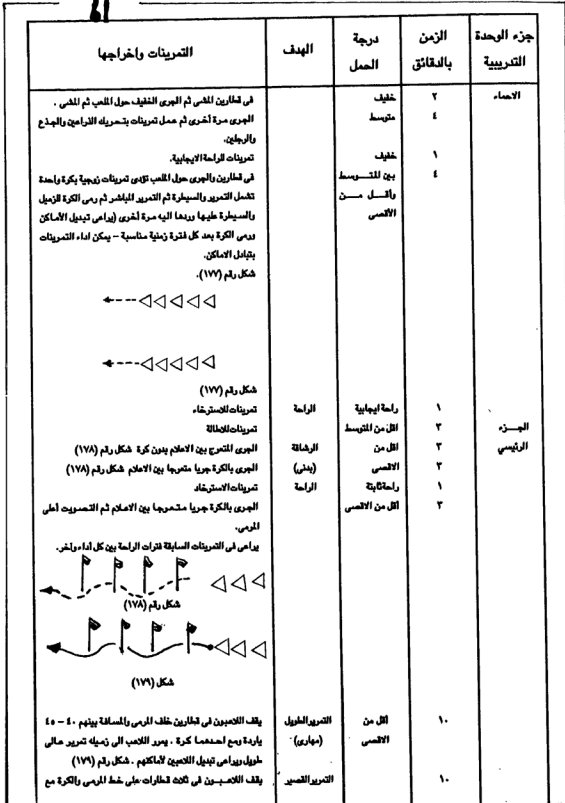 جزء الوحدة
التدريبية
الزمن
بالدقائق
درجة
الحمل
الهدف
التمرينات واخراجها
الاحماء
٢
خفيف
فى قطارين المشى ثم الجرى الخفيف حول الملعب ثم المشى .
٤
متوسط
الجرى مرة أخرى ثم عمل تمرينات بتحريك الذراعين والجذع
والرجلين.
١
خفيف
تمرينات للراحة الايجابية.
٤
بين المتـــوسط
فى قطارين والجرى حول الملعب تؤدى تمرينات زوجية بكرة واحدة
وأقـــل مـــن
تشمل التمرير والسيطرة ثم التمرير المباشر ثم رمى الكرة للزميل
الأقصى
والسيطرة عليها وردها اليه مرة أخرى (يراعى تبديل الأماكن
ورمى الكرة بعد كل فترة زمنية مناسبة – يمكن اداء التمرينات
بتبادل الاماكن.
شكل رقم (١٧٧).
شكل رقم (١٧٧)
١
راحة ايجابية
الراحة
تمرينات للاسترخاء
الجـــزء
٣
اقل من المتوسط
تمرينات للاطالة
الرئيسي
٣
اقل من
الرشاقة
الجرى المتعرج بين الاعلام بدون كرة شكل رقم (١٧٨)
٣
الاقصى
(بدنى)
الجرى بالكرة جريا متعرجا بين الاعلام شكل رقم (١٧٨)
١
راحة ثابتة
الراحة
تمرينات الاسترخاد
٣
أقل من الاقصى
الجرى بالكرة جريا متـعـرجـا بين الاعـلام ثم التـصـويت أعلى
المرمى.
يراعى فى التمرينات السابقة فترات الراحة بين كل أداء وأخر.
شكل رقم (١٧٨)
شكل (١٧٩)
١٠
أقل من
الاقصى
التمرير الطويل
(مهارى)
يقف اللاعبون فى قطارين خلف المرمى والمسافة بينهم ٤٠ – ٤٥
ياردة ومع احـدهمـا كـرة . يمرر اللاعب الى زميله تمرير عـالى
طويل ويراعى تبديل اللاعبين لأماكنهم . شكل رقم (١٧٩)
١٠
التمرير القصير
يقف اللاعـبـــون فى ثلاث قطارات على خط المرمى والكرة مع